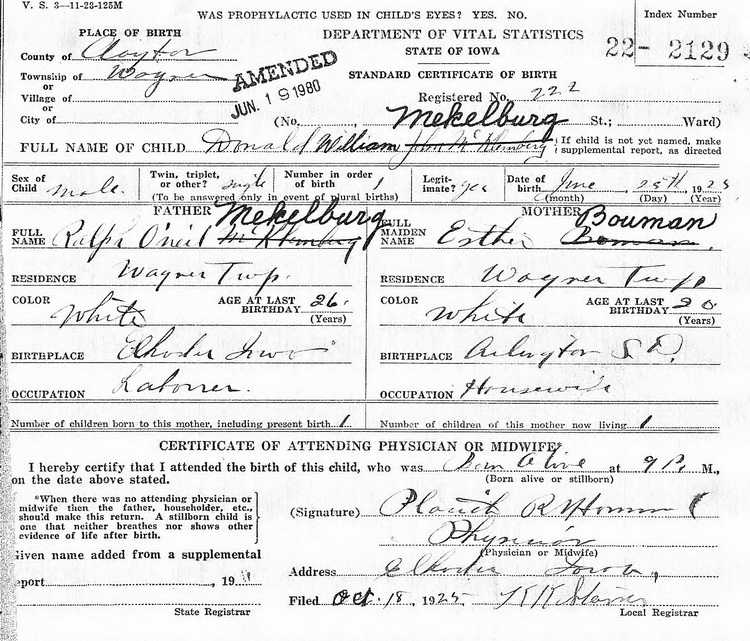 V. S. 3—11-23-125M
WAS PROPHYLACTIC USED IN CHILD'S EYES? YES. NO.
Index Number
PLACE OF BIRTH
DEPARTMENT OF VITAL STATISTICS
22- 2129
County of Clayton
STATE OF IOWA
Township of Wagner
AMENDED
STANDARD CERTIFICATE OF BIRTH
or
JUN. 19 1980
Village of
Registered No. 222
or
City of
(No. Mekelburg St.; Ward)
FULL NAME OF CHILD Donald William
If child is not yet named, make supplemental report, as directed
Sex of Child male.
Twin, triplet, or other? single
Number in order of birth 1
(To be answered only in event of plural births)
Legitimate? yes
Date of birth June 25th, 1925
(month) (Day) (Year)
FATHER
MOTHER
FULL NAME Ralph O'neil Mekelburg
FULL MAIDEN NAME Esther Bouman
RESIDENCE Wagner Twp.
RESIDENCE Wagner Twp
COLOR White
AGE AT LAST BIRTHDAY 26.
(Years)
COLOR White
AGE AT LAST BIRTHDAY 20.
(Years)
BIRTHPLACE Elkader Iowa
BIRTHPLACE Arlington S.D.
OCCUPATION Laborer.
OCCUPATION Housewife
Number of children born to this mother, including present birth 1
Number of children of this mother now living 1
CERTIFICATE OF ATTENDING PHYSICIAN OR MIDWIFE*
I hereby certify that I attended the birth of this child, who was Born Alive at 9 P. M.,
(Born alive or stillborn)
on the date above stated.
*When there was no attending physician or
midwife then the father, householder, etc.,
should make this return. A stillborn child is
one that neither breathes nor shows other
evidence of life after birth.
(Signature)
Physician
(Physician or Midwife)
Given name added from a supplemental
report , 19
Address Elkader Iowa,
State Registrar
Filed Oct. 18, 1925
Local Registrar